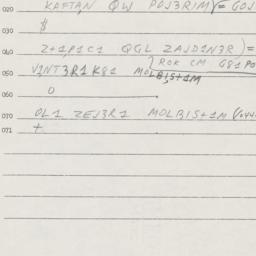 020 KAFTAN QW POJ3RIM(= GOJ
030 $
040 Z+1P1C1 QGL ZAJD1N3R)=
ROK CM G81 PO
050 V1NT3R1K81 MOLBIS+1M
060 0
070 OL1 ZEJ3R1 MOLBIS+1M
071 +